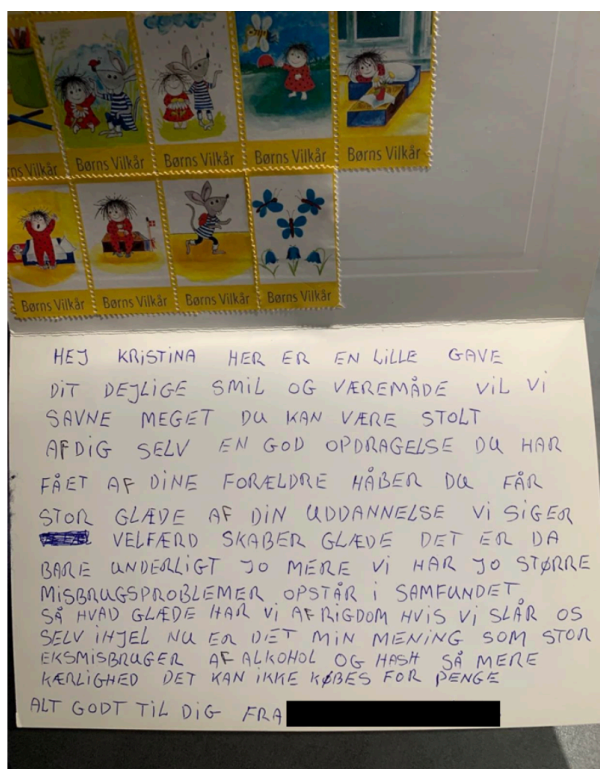 ns Vilkår Børns Vilkår Børns Vilkår Børns Vilkår Børns Vilkår
Børns Vilkår Børns Vilkår Børns Vilkår Børns Vilkår
HEJ KRISTINA HER ER EN LILLE GAVE
DIT DEJLIGE SMIL OG VÆREMÅDE VIL VI
SAVNE MEGET DU KAN VÆRE STOLT
AF DIG SELV EN GOD OPDRAGELSE DU HAR
FÅET AF DINE FORÆLDRE HÅBER DU FÅR
STOR GLÆDE AF DIN UDDANNELSE VI SIGER
VELFÆRD SKABER GLÆDE DET ER DA
BARE UNDERLIGT JO MERE VI HAR JO STØRRE
MISBRUGSPROBLEMER OPSTÅR I SAMFUNDET
SÅ HVAD GLÆDE HAR VI AF RIGDOM HVIS VI SLÅR OS
SELV IHJEL NU ER DET MIN MENING SOM STOR
EKSMISBRUGER AF ALKOHOL OG HASH SÅ MERE
KÆRLIGHED DET KAN IKKE KØBES FOR PENGE
ALT GODT TIL DIG FRA